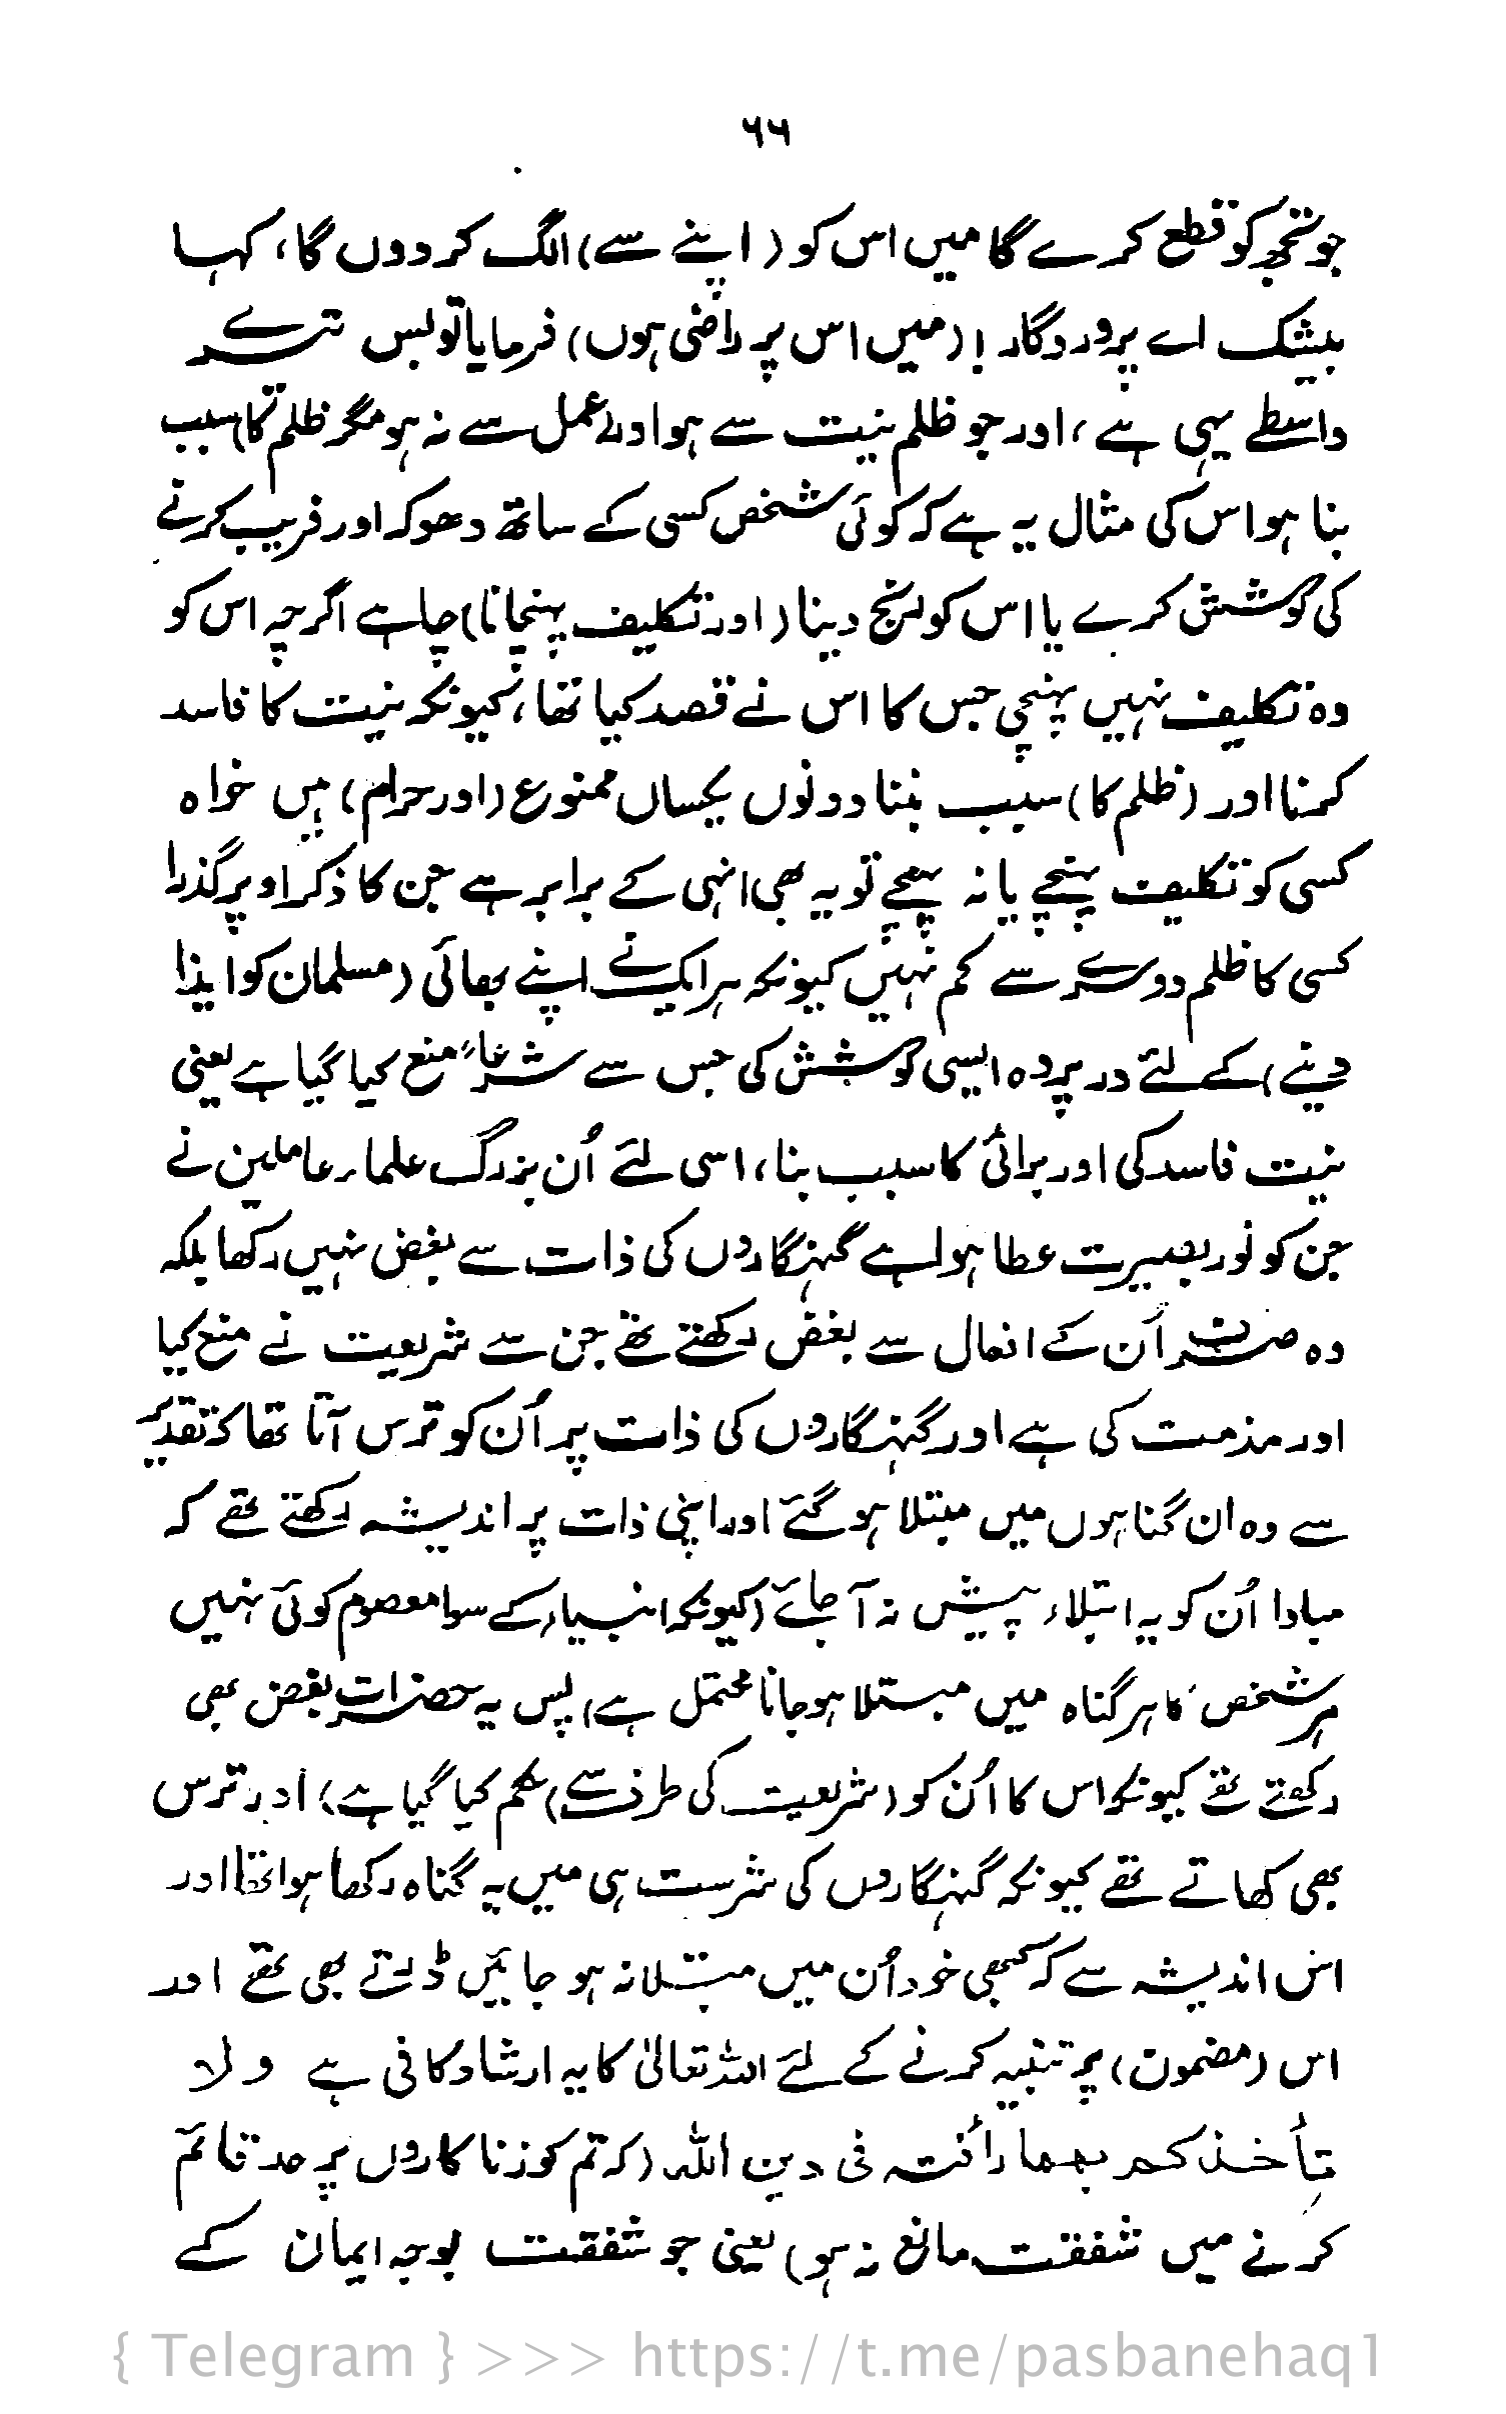 ۶۶
جو تجھ کو قطع کرے گا میں اس کو (اپنے سے) الگ کر دوں گا، کہا
بیشک اے پروردگار! (میں اس پر راضی ہوں) فرمایا تو بس تیرے
واسطے یہی ہے، اور جو ظلم نیت سے ہو اور عمل سے نہ ہو مگر ظلم کا) سبب
بنا ہو اس کی مثال یہ ہے کہ کوئی شخص کسی کے ساتھ دھوکہ اور فریب کرنے
کی کوشش کرے یا اس کو رنج دینا (اور تکلیف پہنچانا) چاہے اگرچہ اس کو
وہ تکلیف نہیں پہنچی جس کا اس نے قصد کیا تھا، کیونکہ نیت کا فاسد
کرنا اور (ظلم کا) سبب بننا دونوں یکساں ممنوع (اور حرام) ہیں خواہ
کسی کو تکلیف پہنچے یا نہ پہنچے تو یہ بھی انہی کے برابر ہے جن کا ذکر اوپر گذرا
کسی کا ظلم دوسرے سے کم نہیں کیونکہ ہر ایک نے اپنے بھائی (مسلمان کو ایذا
دینے) کے لئے در پردہ ایسی کوشش کی جس سے شرعاً منع کیا گیا ہے یعنی
نیت فاسد کی اور برائی کا سبب بنا، اسی لئے اُن بزرگ علماء عاملین نے
جن کو نور بصیرت عطا ہوا ہے گنہگاروں کی ذات سے بغض نہیں رکھا بلکہ
وہ صرف اُن کے افعال سے بغض رکھتے تھے جن سے شریعت نے منع کیا
اور مذمت کی ہے اور گنہگاروں کی ذات پر اُن کو ترس آتا تھا کہ تقدیر
سے وہ ان گناہوں میں مبتلا ہو گئے اور اپنی ذات پر اندیشہ رکھتے تھے کہ
مبادا اُن کو یہ ابتلاء پیش نہ آ جائے (کیونکہ انبیاء کے سوا معصوم کوئی نہیں
ہر شخص کا ہر گناہ میں مبتلا ہو جانا محتمل ہے) پس یہ حضرات بغض بھی
رکھتے تھے کیونکہ اس کا اُن کو (شریعت کی طرف سے) حکم کیا گیا ہے) اور ترس
بھی کھاتے تھے کیونکہ گنہگاروں کی سرشت ہی میں یہ گناہ رکھا ہوا تھا اور
اس اندیشہ سے کہ کبھی خود اُن میں مبتلا نہ ہو جائیں ڈرتے بھی تھے اور
اس (مضمون) پر تنبیہ کرنے کے لئے اللہ تعالیٰ کا یہ ارشاد کافی ہے ولا
تأخذکم بھما رأفتہ فی دین اللہ (کہ تم کو زنا کاروں پر حد قائم
کرنے میں شفقت مانع نہ ہو) یعنی جو شفقت بوجہ ایمان کے
{ Telegram } >>> https://t.me/pasbanehaq1